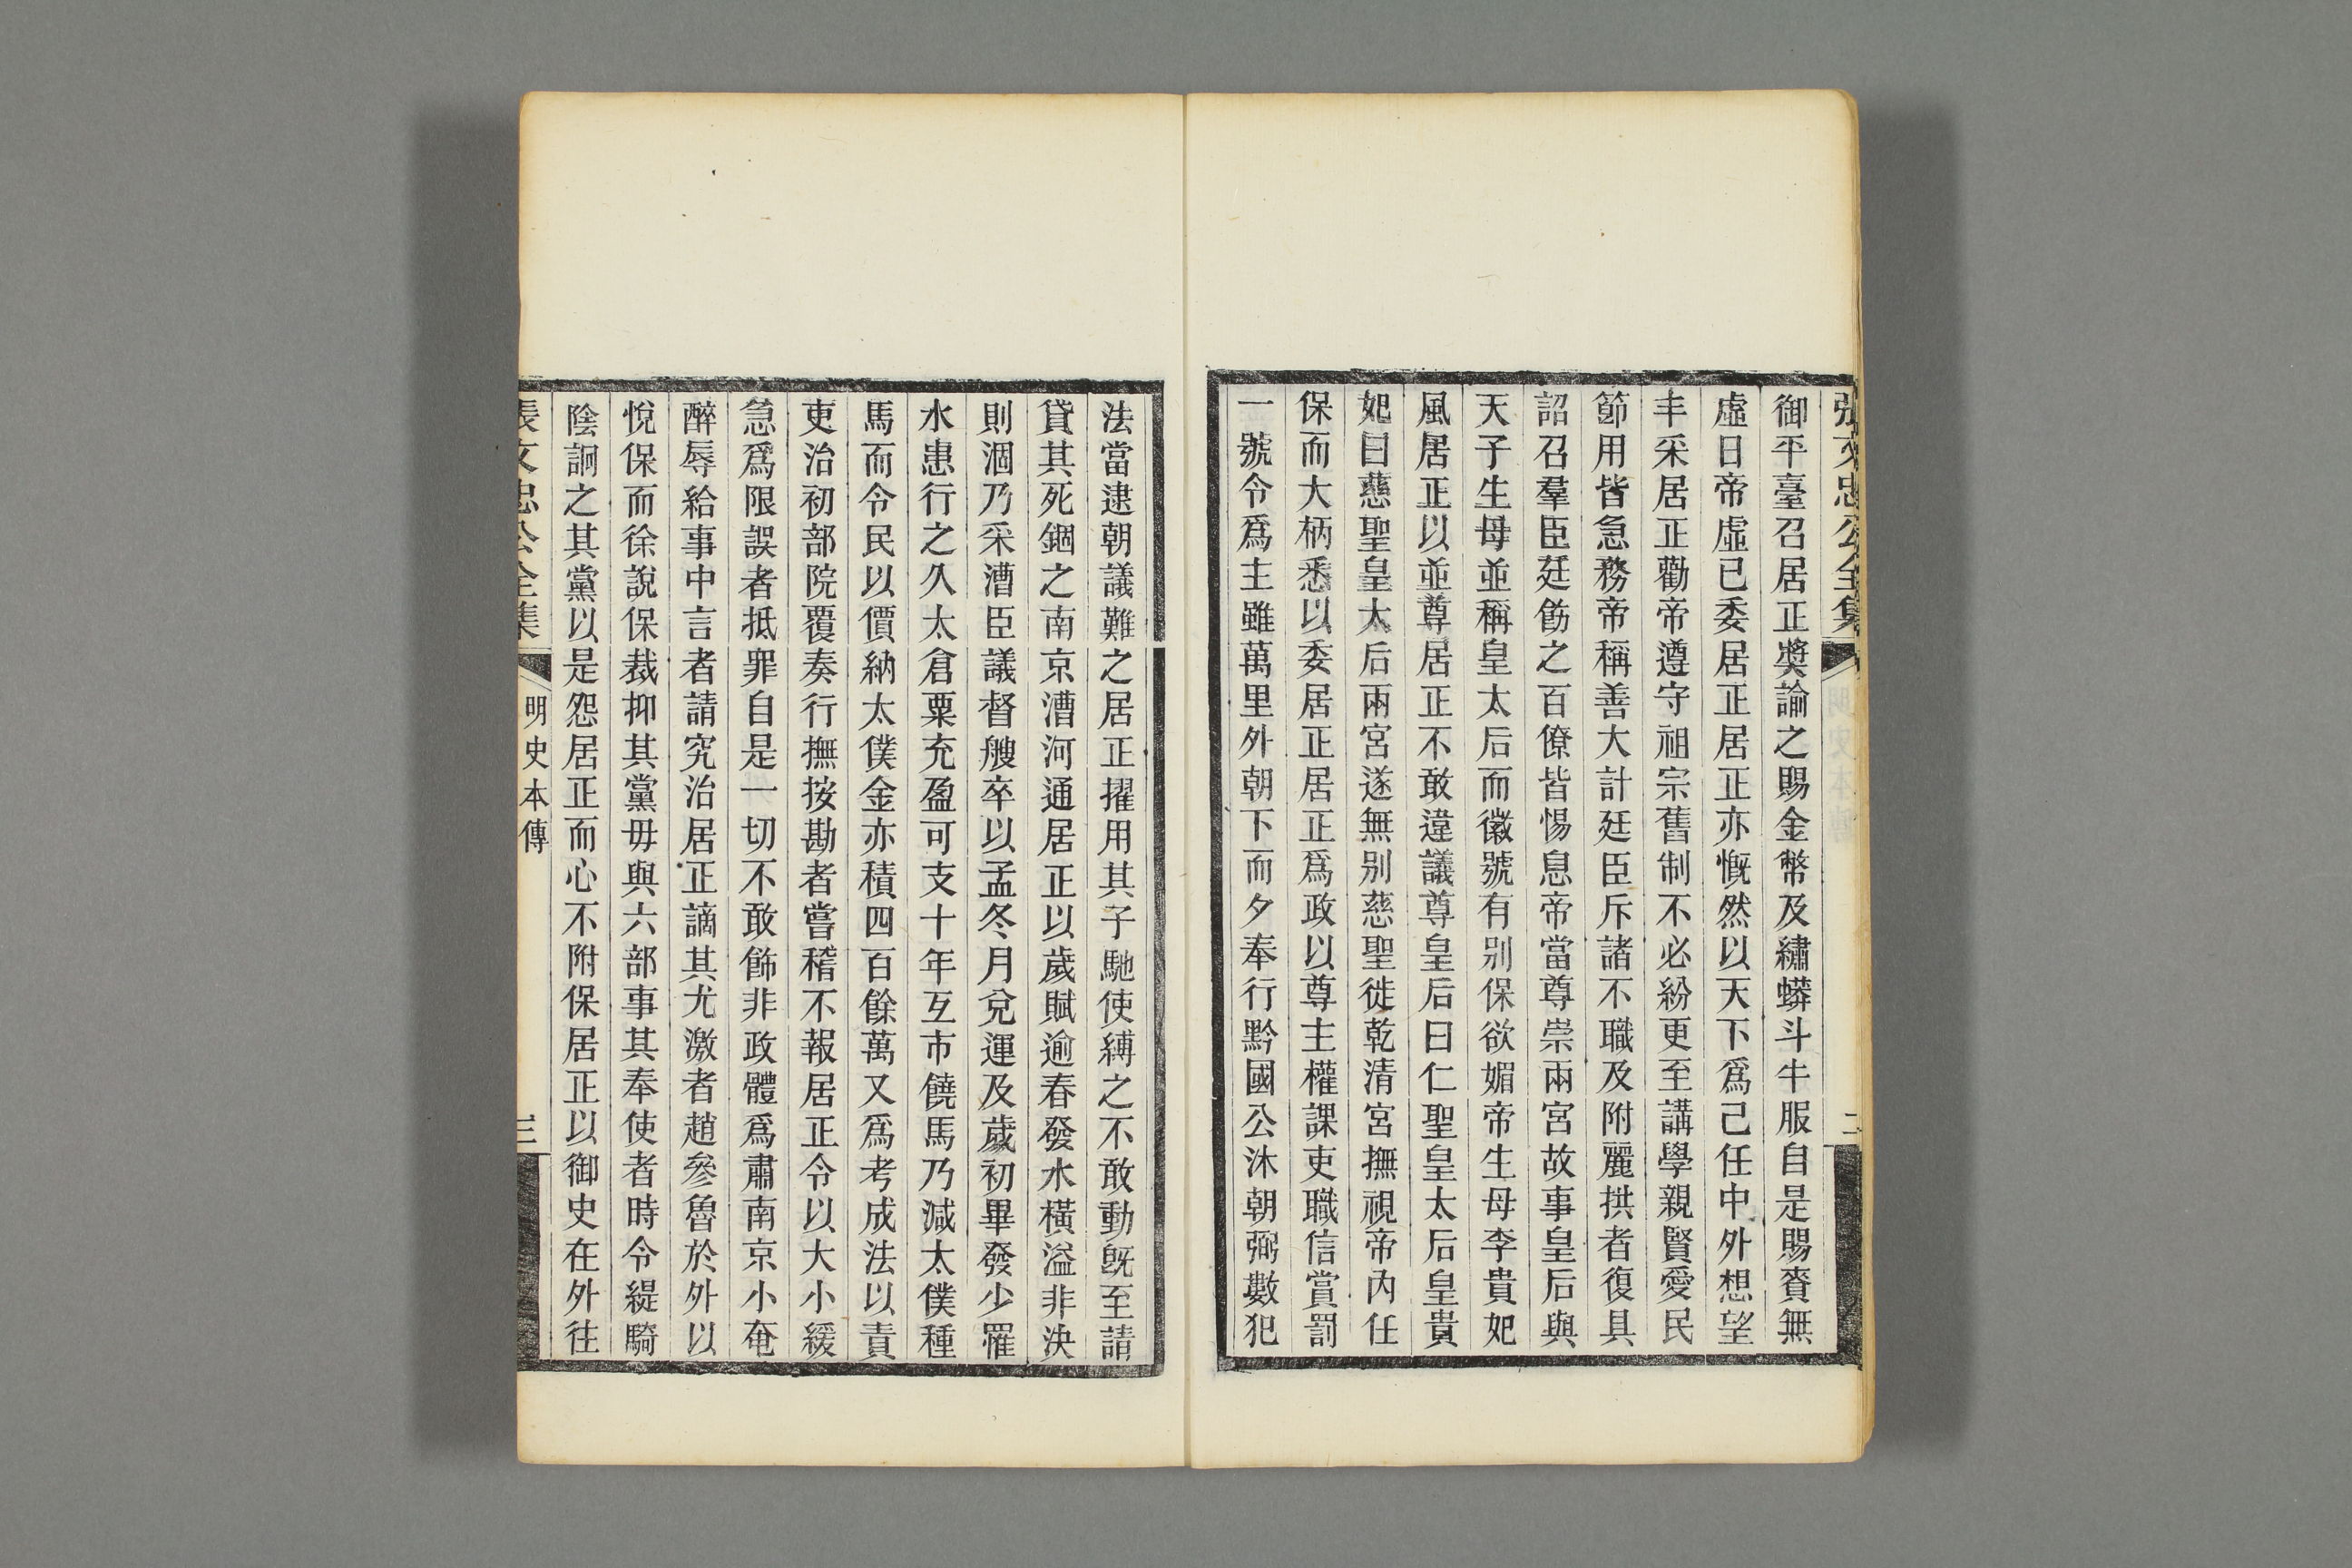 張文忠公全集
二
御平臺召居正奬諭之賜金幣及繡蟒斗牛服自是賜賚無
虛日帝虛已委居正居正亦慨然以天下爲己任中外想望
丰采居正勸帝遵守祖宗舊制不必紛更至講學親賢愛民
節用皆急務帝稱善大計廷臣斥諸不職及附麗拱者復具
詔召羣臣廷飭之百僚皆惕息帝當尊崇兩宮故事皇后與
天子生母並稱皇太后而徽號有别保欲媚帝生母李貴妃
風居正以並尊居正不敢違議尊皇后曰仁聖皇太后皇貴
妃曰慈聖皇太后兩宮遂無别慈聖徙乾清宮撫視帝內任
保而大柄悉以委居正居正爲政以尊主權課吏職信賞罰
一號令爲主雖萬里外朝下而夕奉行黔國公沐朝弼數犯
法當逮朝議難之居正擢用其子馳使縛之不敢動旣至請
貸其死錮之南京漕河通居正以歲賦逾春發水橫溢非決
則涸乃采漕臣議督艘卒以孟冬月兌運及歲初畢發少罹
水患行之久太倉粟充盈可支十年互市饒馬乃減太僕種
馬而令民以價納太僕金亦積四百餘萬又爲考成法以責
吏治初部院覆奏行撫按勘者嘗稽不報居正令以大小緩
急爲限誤者抵罪自是一切不敢飾非政體爲肅南京小奄
醉辱給事中言者請究治居正謫其尤激者趙參魯於外以
悅保而徐說保裁抑其黨毋與六部事其奉使者時令緹騎
陰詗之其黨以是怨居正而心不附保居正以御史在外往
張文忠公全集
明史本傳
三